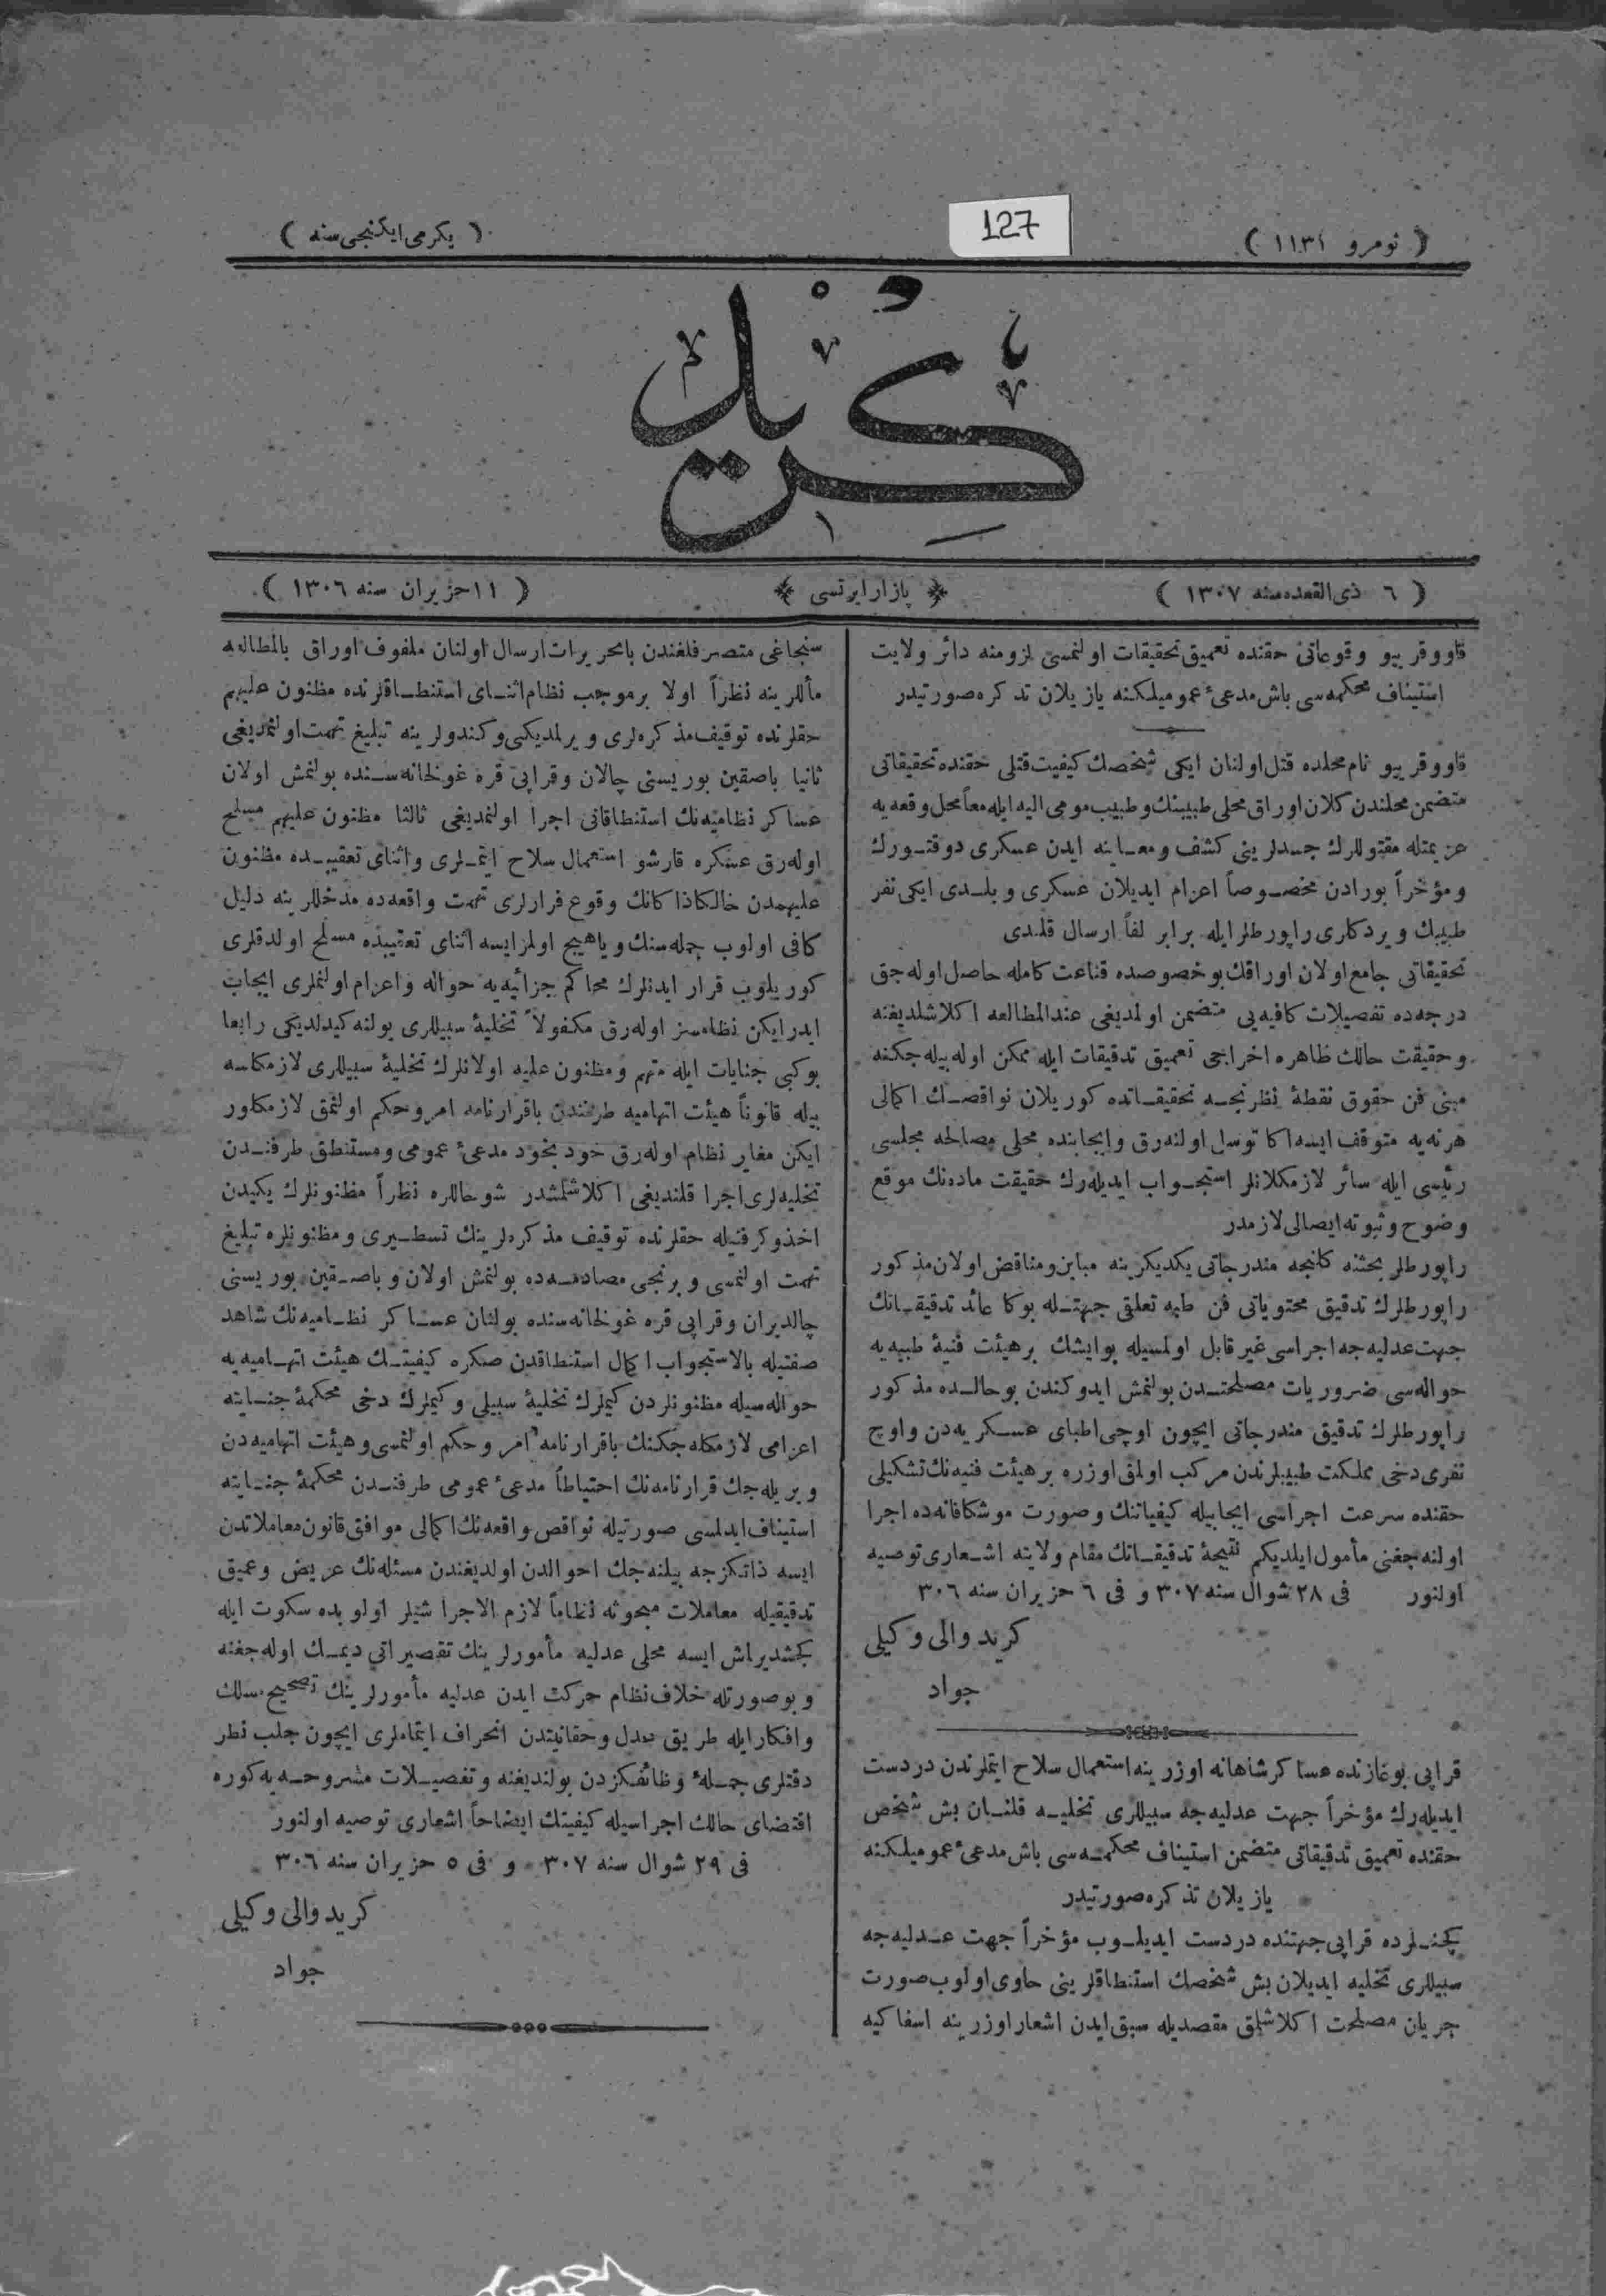 ( نومرو ١١٣١ )
127
( يكرمى ايكنجى سنه )
كريد
( ٦ ذى القعده سنه ١٣٠٧ )
پازار ايرتسى
( ١١ حزيران سنه ١٣٠٦ )
قاووقريبو وقوعاتى حقنده تعميق تحقيقات اولنمسى لزومنه دائر ولايت
استيناف محكمه سى باش مدعئ عموميلكنه يازيلان تذكره صورتيدر
قاووقريبو نام محلده قتل اولنان ايكى شخصك كيفيت قتلى حقنده تحقيقاتى
متضمن محلندن كلان اوراق محلى طبيبنك وطبيب مومى اليه ايله معاً محل وقعه يه
عزيمتله مقتوللرك جسدلرينى كشف ومعاينه ايدن عسكرى دوقتورك
ومؤخراً بورادن مخصوصاً اعزام ايديلان عسكرى وبلدى ايكى نفر
طبيبك ويردكلرى راپورطلر ايله برابر لفاً ارسال قلندى
تحقيقاتى جامع اولان اوراقك بو خصوصده قناعت كامله حاصل اوله جق
درجه ده تفصيلات كافيه يى متضمن اولمديغى عندالمطالعه اكلاشلديغنه
وحقيقت حالك ظاهره اخراجى تعميق تدقيقات ايله ممكن اوله بيله جكنه
مبنى فن حقوق نقطهٔ نظرنجه تحقيقاتده كوريلان نواقصك اكمالى
هرنه يه متوقف ايسه اكا توسل اولنه رق وايجابنده محلى مصالحه مجلسى
رئيسى ايله سائر لازمكلانلر استجواب ايديله رك حقيقت ماده نك موقع
وضوح وثبوته ايصالى لازمدر
راپورطلر بحثنه كلنجه مندرجاتى يكديكرينه مباين ومناقض اولان مذكور
راپورطلرك تدقيق محتوياتى فن طبه تعلقى جهتله بوكا عائد تدقيقاتك
جهت عدليه جه اجراسى غير قابل اولمسيله بوايشك برهيئت فنيهٔ طبيه يه
حواله سى ضروريات مصلحتدن بولنمش ايدوكندن بوحالده مذكور
راپورطلرك تدقيق مندرجاتى ايچون اوچى اطباى عسكريه دن واوچ
نفرى دخى مملكت طبيبلرندن مركب اولمق اوزره برهيئت فنيه نك تشكيلى
حقنده سرعت اجراسى ايجابيله كيفياتنك وصورت موشكافانه ده اجرا
اولنه جغنى مأمول ايلديكم نتيجهٔ تدقيقاتك مقام ولايته اشعارى توصيه
اولنور فى ٢٨ شوال سنه ٣٠٧ و فى ٦ حزيران سنه ٣٠٦
كريد والى وكيلى
جواد
قراپى بوغازنده عساكر شاهانه اوزرينه استعمال سلاح ايتملرندن دردست
ايديله رك مؤخراً جهت عدليه جه سبيللرى تخليه قلنان بش شخص
حقنده تعميق تدقيقاتى متضمن استيناف محكمه سى باش مدعئ عموميلكنه
يازيلان تذكره صورتيدر
كچنلرده قراپى جهتنده دردست ايديلوب مؤخراً جهت عدليه جه
سبيللرى تخليه ايديلان بش شخصك استنطاقلرينى حاوى اولوب صورت
جريان مصلحت اكلاشلمق مقصديله سبق ايدن اشعار اوزرينه اسفاكيه
سنجاغى متصرفلغندن باتحريرات ارسال اولنان ملفوف اوراق بالمطالعه
مأللرينه نظراً اولا برموجب نظام اثناى استنطاقلرنده مظنون عليهم
حقلرنده توقيف مذكره لرى ويرلمديكى وكندولرينه تبليغ تهمت اولنمديغى
ثانيا باصقين بوريسنى چالان وقراپى قره غولخانه سنده بولنمش اولان
عساكر نظاميه نك استنطاقاتى اجرا اولنمديغى ثالثا مظنون عليهم مسلح
اوله رق عسكره قارشو استعمال سلاح ايتملرى واثناى تعقيبده مظنون
عليهمدن خالكاداكانك وقوع فرارلرى تهمت واقعه ده مدخللرينه دليل
كافى اولوب جمله سنك ويا هيچ اولمز ايسه اثناى تعقيبده مسلح اولدقلرى
كوريلوب فرار ايدنلرك محاكم جزائيه يه حواله واعزام اولنملرى ايجاب
ايدرايكن نظامسز اوله رق مكفولاً تخليهٔ سبيللرى يولنه كيدلديكى رابعا
بوكبى جنايات ايله متهم ومظنون عليه اولانلرك تخليهٔ سبيللرى لازمكلسه
بيله قانوناً هيئت اتهاميه طرفندن باقرارنامه امر وحكم اولنمق لازمكلور
ايكن مغاير نظام اوله رق خود بخود مدعئ عمومى ومستنطق طرفندن
تخليه لرى اجرا قلنديغى اكلاشلمشدر شو حاللره نظراً مظنونلرك يكيدن
اخذ وكرفتيله حقلرنده توقيف مذكره لرينك تسطيرى ومظنونلره تبليغ
تهمت اولنمسى وبرنجى مصادمه ده بولنمش اولان وباصقين بوريسنى
چالديران وقراپى قره غولخانه سنده بولنان عساكر نظاميه نك شاهد
صفتيله بالاستجواب اكمال استنطاقدن صكره كيفيتك هيئت اتهاميه يه
حواله سيله مظنونلردن كيملرك تخليهٔ سبيلى وكيملرك دخى محكمهٔ جنايته
اعزامى لازمكله جكنك باقرارنامه امر وحكم اولنمسى وهيئت اتهاميه دن
ويريله جك قرارنامه نك احتياطاً مدعئ عمومى طرفندن محكمهٔ جنايته
استيناف ايدلمسى صورتيله نواقص واقعه نك اكمالى موافق قانون معاملاتدن
ايسه ذاتكزجه بيلنه جك احوالدن اولديغندن مسئله نك عريض وعميق
تدقيقيله معاملات مبحوثه نظاماً لازم الاجرا شيلر اولوبده سكوت ايله
كچشديرلمش ايسه محلى عدليه مأمورلرينك تقصيراتى ديمك اوله جغنه
وبوصورتله خلاف نظام حركت ايدن عدليه مأمورلرينك تصحيح مسلك
وافكار ايله طريق عدل وحقانيتدن انحراف ايتماملرى ايچون جلب نظر
دقتلرى جملهٔ وظائفكزدن بولنديغنه وتفصيلات مشروحه يه كوره
اقتضاى حالك اجراسيله كيفيتك ايضاحاً اشعارى توصيه اولنور
فى ٢٩ شوال سنه ٣٠٧ و فى ٥ حزيران سنه ٣٠٦
كريد والى وكيلى
جواد